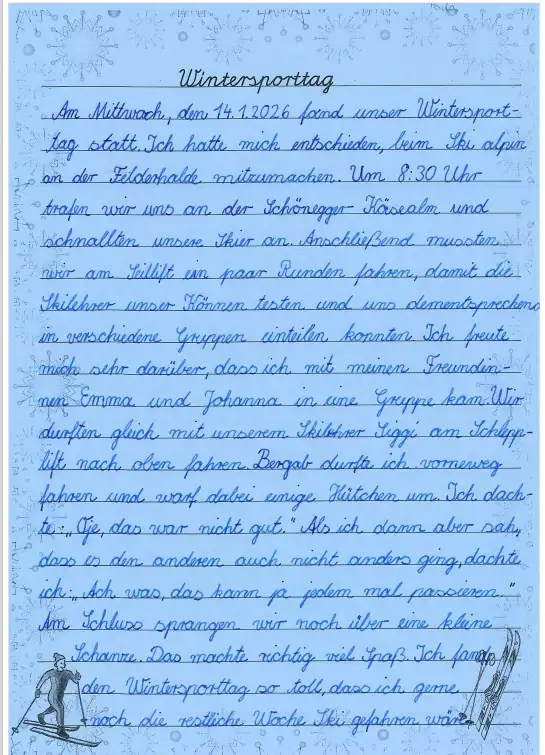 Wintersporttag
Am Mittwoch, den 14.1.2026 fand unser Wintersport-
tag statt. Ich hatte mich entschieden, beim Ski alpin
an der Felderhalde mitzumachen. Um 8:30 Uhr
trafen wir uns an der Schönegger Käsealm und
schnallten unsere Skier an. Anschließend mussten
wir am Seillift ein paar Runden fahren, damit die
Skilehrer unser Können testen und uns dementsprechend
in verschiedene Gruppen einteilen konnten. Ich freute
mich sehr darüber, dass ich mit meinen Freundin-
nen Emma und Johanna in eine Gruppe kam. Wir
durften gleich mit unserem Skilehrer Siggi am Schlepp-
lift nach oben fahren. Bergab durfte ich vorneweg
fahren und warf dabei einige Hütchen um. Ich dach-
te: „Oje, das war nicht gut." Als ich dann aber sah,
dass es den anderen auch nicht anders ging, dachte
ich: „Ach was, das kann ja jedem mal passieren."
Am Schluss sprangen wir noch über eine kleine
Schanze. Das machte richtig viel Spaß. Ich fand
den Wintersporttag so toll, dass ich gerne
noch die restliche Woche Ski gefahren wäre.